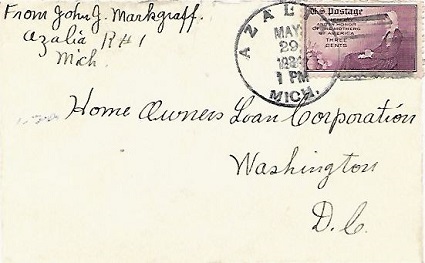 From John J. Markgraff.
Azalia R#1
Mich.
AZALIA
MAY
29
1 PM
MICH.
US Postage
OF THE MOTHERS
OF AMERICA
THREE
CENTS
Home Owners Loan Corporation
Washington
D.C.